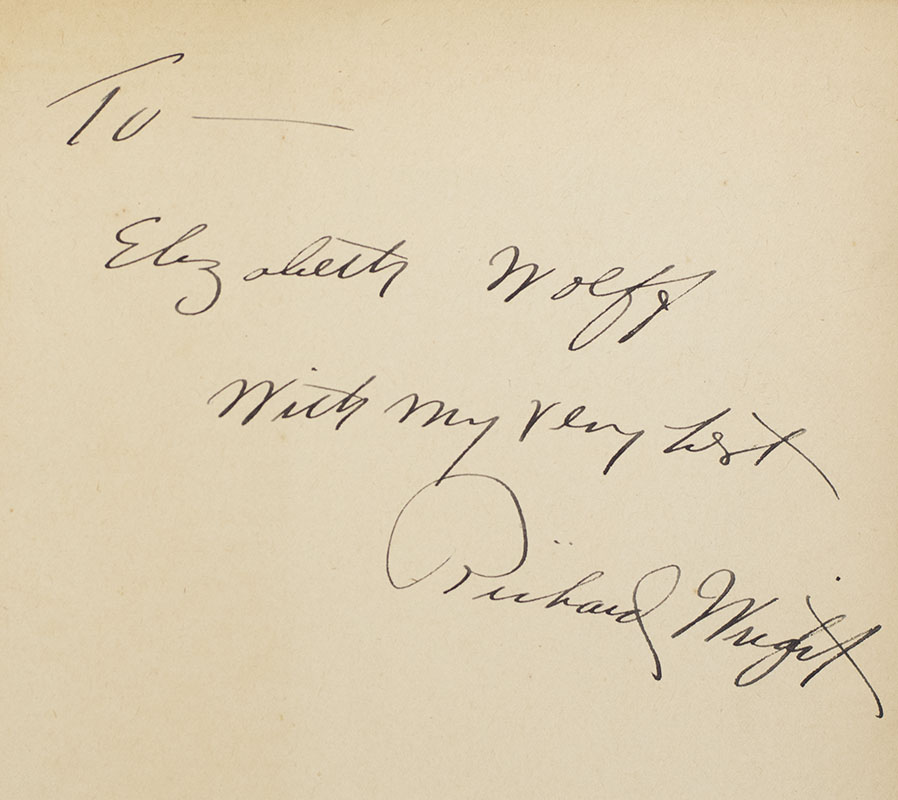 To —
Elizabeth Wolff
With my very best
Richard Wright